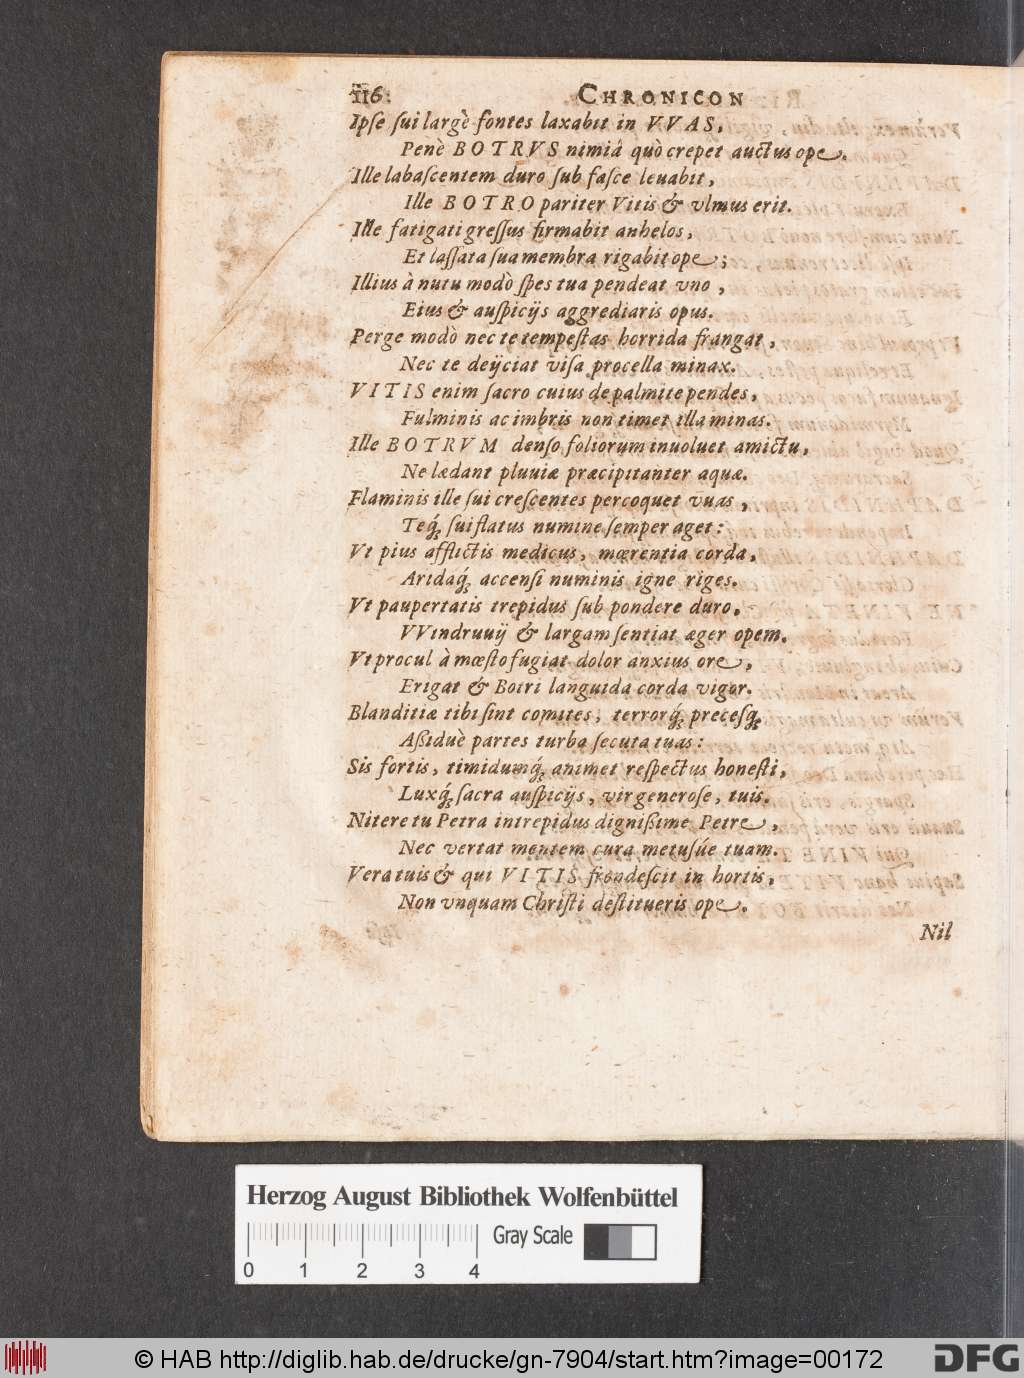 116. CHRONICON
Ipſe ſui largè fontes laxabit in VVAS,
Penè BOTRVS nimiâ quò crepet auctus ope.
Ille labaſcentem duro ſub faſce leuabit,
Ille BOTRO pariter Vitis & vlmus erit.
Ille fatigati greſſus firmabit anhelos,
Et laſſata ſua membra rigabit ope;
Illius à nutu modò ſpes tua pendeat vno,
Eius & auſpicijs aggrediaris opus.
Perge modò nec te tempeſtas horrida frangat,
Nec te deijciat viſa procella minax.
VITIS enim ſacro cuius de palmite pendes,
Fulminis ac imbris non timet illa minas.
Ille BOTRVM denſo foliorum inuoluet amictu,
Ne lædant pluuiæ præcipitanter aquæ.
Flaminis ille ſui creſcentes percoquet vuas,
Teq́ꝫ ſui flatus numine ſemper aget:
Vt pius afflictis medicus, mœrentia corda,
Aridaq́ꝫ accenſi numinis igne riges.
Vt paupertatis trepidus ſub pondere duro,
VVindruuij & largam ſentiat æger opem.
Vt procul à mœſto fugiat dolor anxius ore,
Erigat & Botri languida corda vigor.
Blanditiæ tibi ſint comites, terrorq́ꝫ preceſq́ꝫ
Aßiduè partes turba ſecuta tuas:
Sis fortis, timidumq́ꝫ animet reſpectus honeſti,
Luxq́ꝫ ſacra auſpicijs, vir generoſe, tuis.
Nitere tu Petra intrepidus dignißime Petre,
Nec vertat mentem cura metuſúe tuam.
Vera tuis & qui VITIS frondeſcit in hortis,
Non vnquam Chriſti deſtitueris ope.
Nil
Herzog August Bibliothek Wolfenbüttel
Gray Scale
0 1 2 3 4
© HAB http://diglib.hab.de/drucke/gn-7904/start.htm?image=00172
DFG